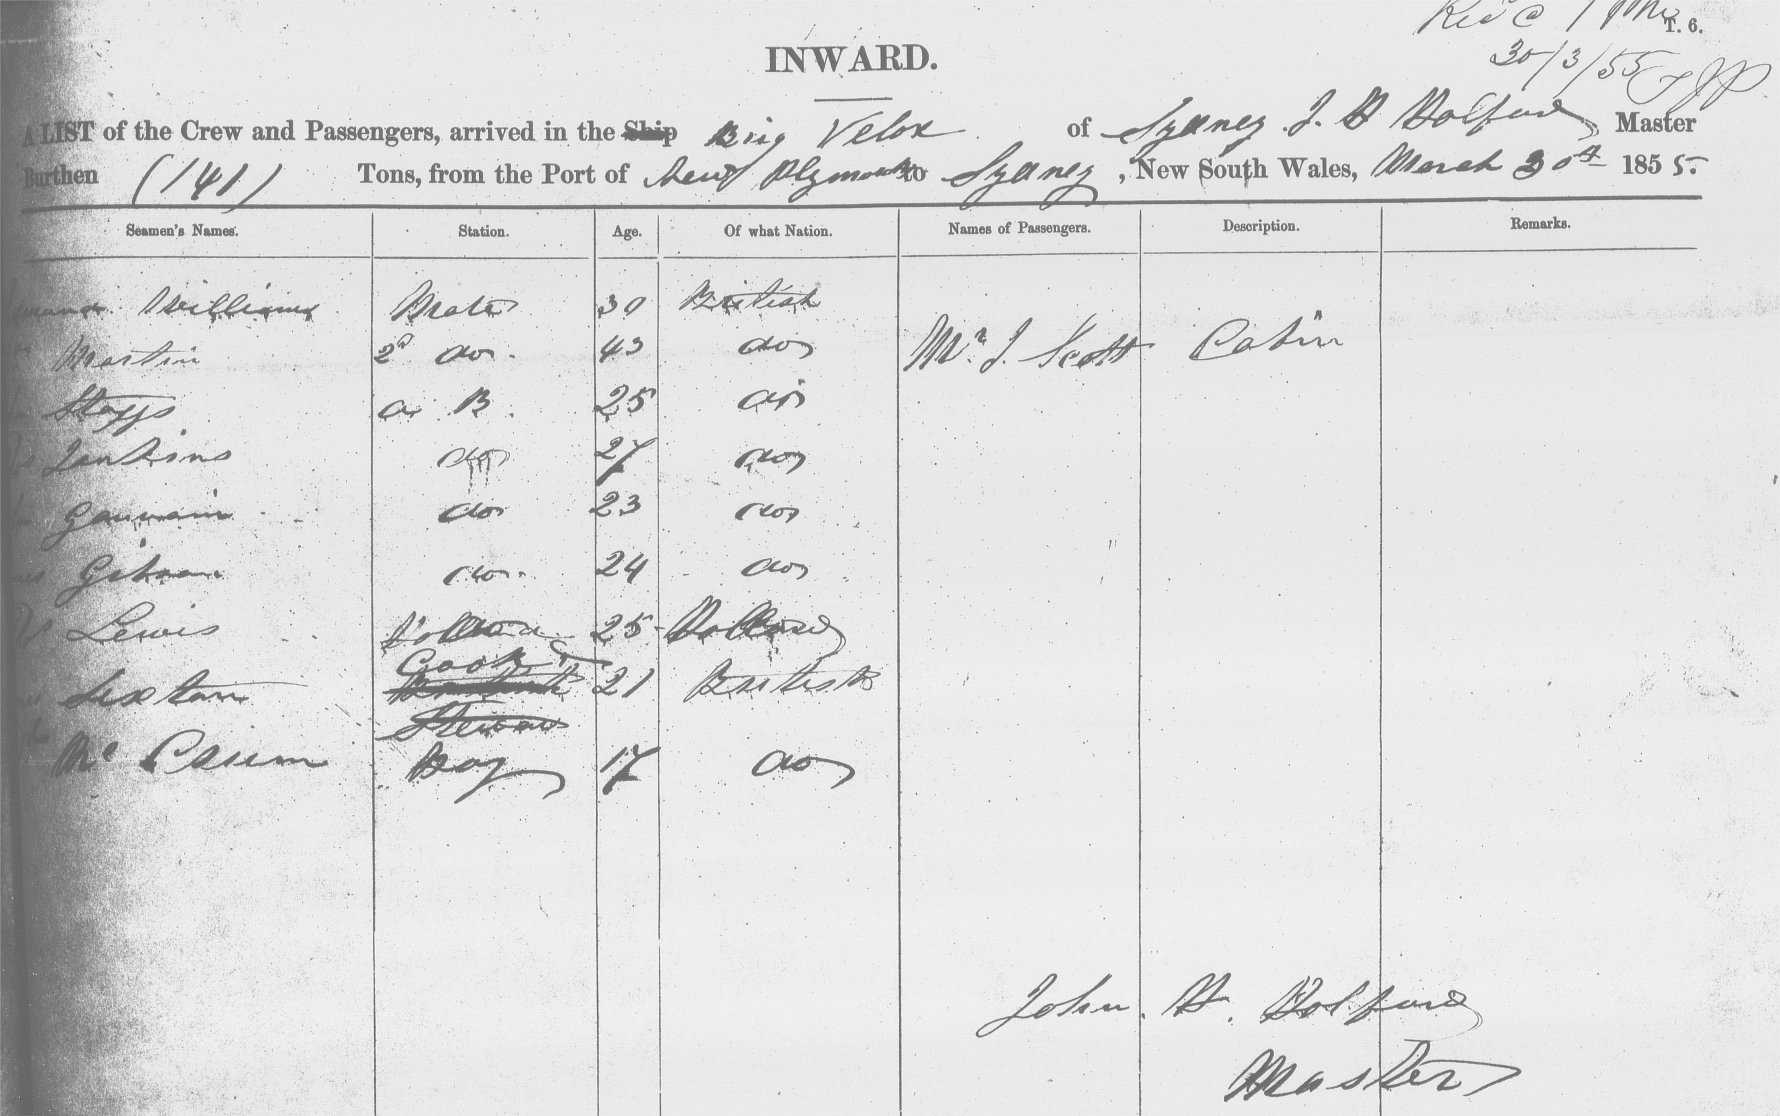 T. 6.
INWARD.
30/3/55
A LIST of the Crew and Passengers, arrived in the Ship Brig Velox of Sydney J. H Holford Master
Burthen (141) Tons, from the Port of New Plymouth to Sydney, New South Wales, March 30th 1855.
Seamen's Names. Station. Age. Of what Nation. Names of Passengers. Description. Remarks.
Williams Mate 30 British
Martin 2d do. 43 do Mr. J. Scott Cabin
Staggs a B. 25 do
Jenkins do 27 do
Gaunain do 23 do
Gibson do. 24 do
Lewis 25 Holland
Cook &
Sexton 21 British
Steward
Mc Boy 17 do
John. H. Holford
Master